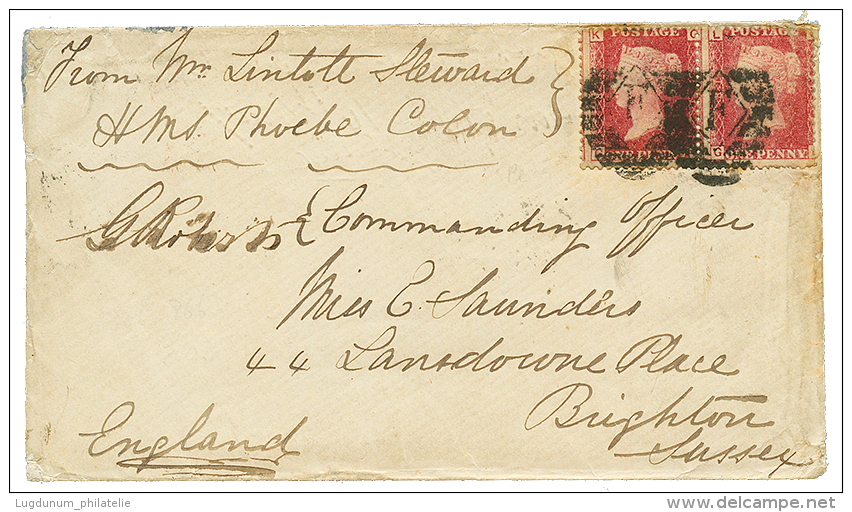 From Mr Lintott Steward
HMS. Phoebe Colon
G Roberts Commanding Officer
Miss E. Saunders
44 Lansdowne Place
Brighton
Sussex
England
K POSTAGE G
L POSTAGE
G ONE PENNY
Lugdunum_philatelie
delcampe.net